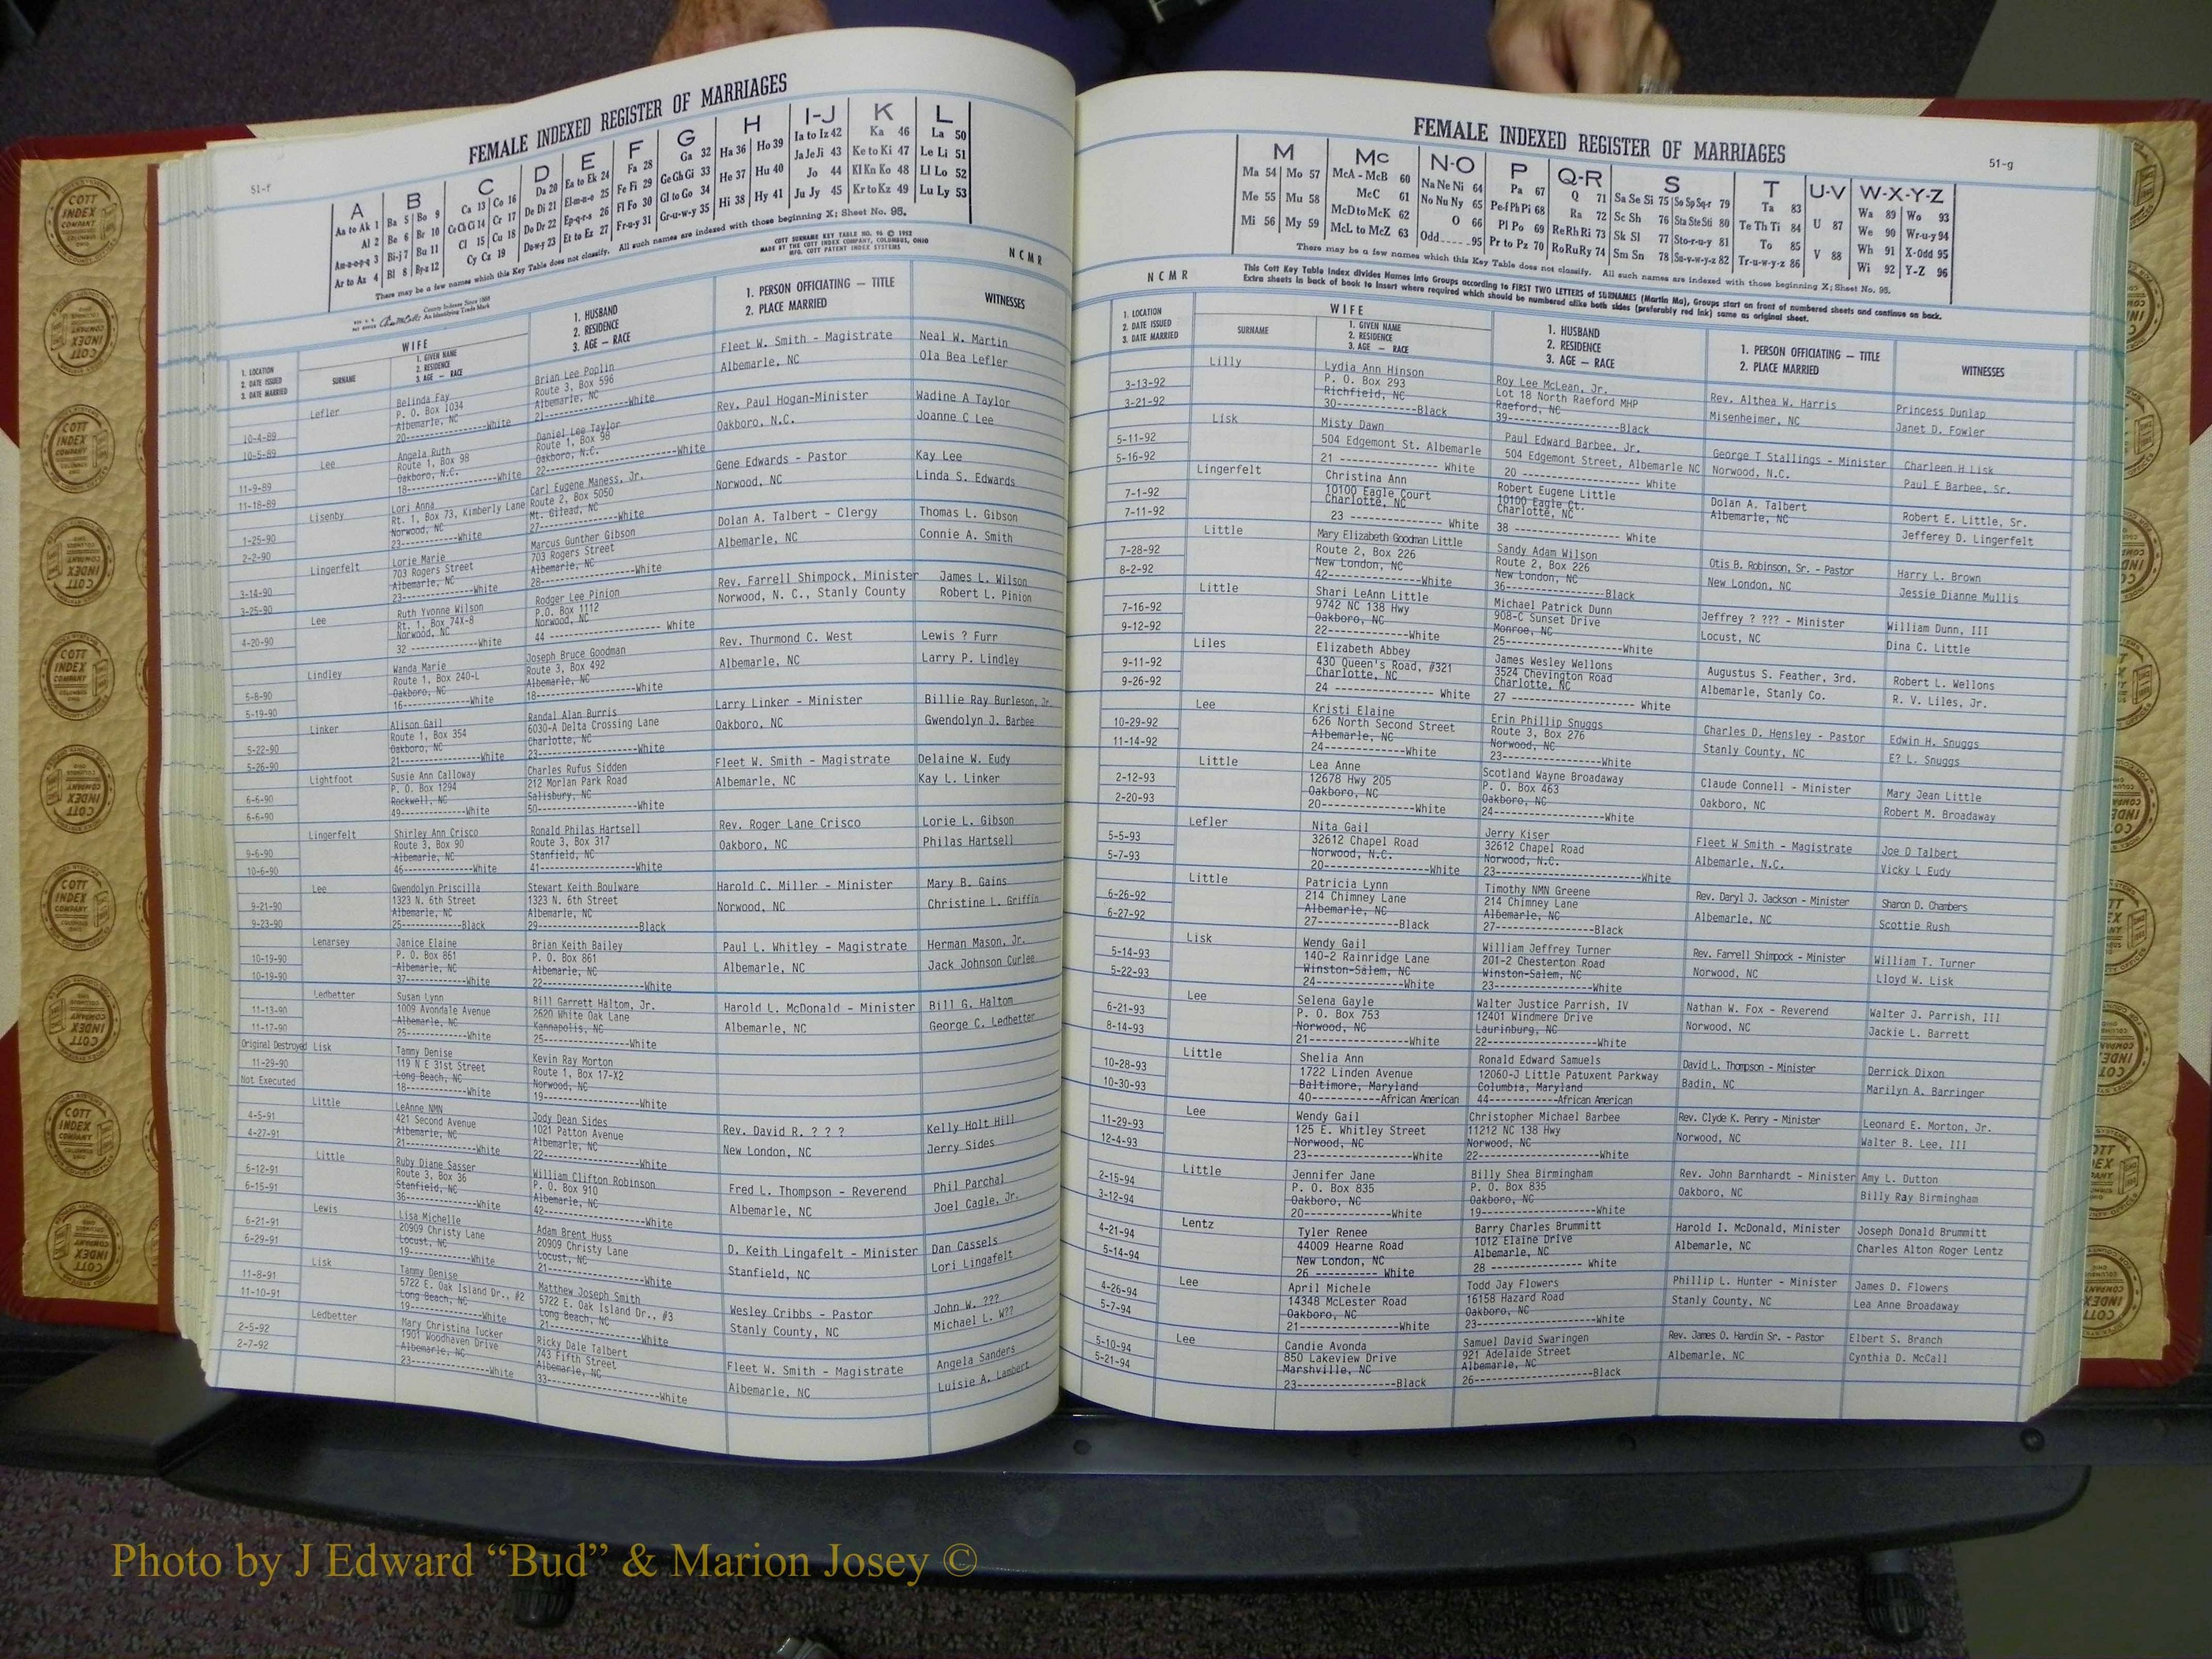 FEMALE INDEXED REGISTER OF MARRIAGES
51-f
A B C D E F G H I-J K L
Aa to Ak 1 Ba 5 Bo 9 Ca 13 Co 16 Da 20 Ea to Ek 24 Fa 28 Ga 32 Ha 36 Ho 39 Ia to Iz 42 Ka 46 La 50
Al 2 Be 6 Br 10 Ce Ch Ci 14 Cr 17 De Di 21 El-m-n-o 25 Fe Fi 29 Ge Gh Gi 33 He 37 Hu 40 Ja Je Ji 43 Ke to Ki 47 Le Li 51
Am-n-o-p-q 3 Bi-j 7 Bu 11 Cl 15 Cu 18 Do Dr 22 Ep-q-r-s 26 Fl Fo 30 Gl to Go 34 Hi 38 Hy 41 Jo 44 Kl Kn Ko 48 Ll Lo 52
Ar to Az 4 Bl 8 By-z 12 Cy Cz 19 Du-w-y 23 Et to Ez 27 Fr-u-y 31 Gr-u-w-y 35 Ju Jy 45 Kr to Kz 49 Lu Ly 53
There may be a few names which this Key Table does not classify. All such names are indexed with those beginning X; Sheet No. 95.
COTT SURNAME KEY TABLE NO. 96 © 1952
MADE BY THE COTT INDEX COMPANY, COLUMBUS, OHIO
MFG. COTT PATENT INDEX SYSTEMS
County Indexes Since 1888
An Identifying Trade Mark
N C M R
1. LOCATION
2. DATE ISSUED
3. DATE MARRIED
WIFE
SURNAME
1. GIVEN NAME
2. RESIDENCE
3. AGE — RACE
1. HUSBAND
2. RESIDENCE
3. AGE - RACE
1. PERSON OFFICIATING — TITLE
2. PLACE MARRIED
WITNESSES
Lefler Belinda Fay Brian Lee Poplin Fleet W. Smith - Magistrate Neal W. Martin
P. O. Box 1034 Route 3, Box 596 Albemarle, NC Ola Bea Lefler
10-4-89 Albemarle, NC Albemarle, NC
10-5-89 20------------White 21------------White
Lee Angela Ruth Daniel Lee Taylor Rev. Paul Hogan-Minister Wadine A Taylor
Route 1, Box 98 Route 1, Box 98 Oakboro, N.C. Joanne C Lee
11-9-89 Oakboro, N.C. Oakboro, N.C.
11-18-89 18------------White 22------------White
Lisenby Lori Anna Carl Eugene Maness, Jr. Gene Edwards - Pastor Kay Lee
Rt. 1, Box 73, Kimberly Lane Route 2, Box 5050 Norwood, NC Linda S. Edwards
1-25-90 Norwood, NC Mt. Gilead, NC
2-2-90 23------------White 27------------White
Lingerfelt Lorie Marie Marcus Gunther Gibson Dolan A. Talbert - Clergy Thomas L. Gibson
703 Rogers Street 703 Rogers Street Albemarle, NC Connie A. Smith
3-14-90 Albemarle, NC Albemarle, NC
3-25-90 23------------White 28------------White
Lee Ruth Yvonne Wilson Rodger Lee Pinion Rev. Farrell Shimpock, Minister James L. Wilson
Rt. 1, Box 74X-8 P.O. Box 1112 Norwood, N. C., Stanly County Robert L. Pinion
4-20-90 Norwood, NC Norwood, NC
32 ------------ White 44 ------------ White
Lindley Wanda Marie Joseph Bruce Goodman Rev. Thurmond C. West Lewis ? Furr
Route 1, Box 240-L Route 3, Box 492 Albemarle, NC Larry P. Lindley
5-8-90 Oakboro, NC Albemarle, NC
5-19-90 16------------White 18------------White
Linker Alison Gail Randal Alan Burris Larry Linker - Minister Billie Ray Burleson, Jr.
Route 1, Box 354 6030-A Delta Crossing Lane Oakboro, NC Gwendolyn J. Barbee
5-22-90 Oakboro, NC Charlotte, NC
5-26-90 21------------White 23------------White
Lightfoot Susie Ann Calloway Charles Rufus Sidden Fleet W. Smith - Magistrate Delaine W. Eudy
P. O. Box 1294 212 Morlan Park Road Albemarle, NC Kay L. Linker
6-6-90 Rockwell, NC Salisbury, NC
6-6-90 49------------White 50------------White
Lingerfelt Shirley Ann Crisco Ronald Philas Hartsell Rev. Roger Lane Crisco Lorie L. Gibson
Route 3, Box 90 Route 3, Box 317 Oakboro, NC Philas Hartsell
9-6-90 Albemarle, NC Stanfield, NC
10-6-90 46------------White 41------------White
Lee Gwendolyn Priscilla Stewart Keith Boulware Harold C. Miller - Minister Mary B. Gains
1323 N. 6th Street 1323 N. 6th Street Norwood, NC Christine L. Griffin
9-21-90 Albemarle, NC Albemarle, NC
9-23-90 25------------Black 29------------Black
Lenarsey Janice Elaine Brian Keith Bailey Paul L. Whitley - Magistrate Herman Mason, Jr.
P. O. Box 861 P. O. Box 861 Albemarle, NC Jack Johnson Curlee
10-19-90 Albemarle, NC Albemarle, NC
10-19-90 37------------White 22------------White
Ledbetter Susan Lynn Bill Garrett Haltom, Jr. Harold L. McDonald - Minister Bill G. Haltom
11-13-90 1009 Avondale Avenue 2620 White Oak Lane Albemarle, NC George C. Ledbetter
11-17-90 Albemarle, NC Kannapolis, NC
25------------White 25------------White
Original Destroyed Lisk Tammy Denise Kevin Ray Morton
11-29-90 119 N E 31st Street Route 1, Box 17-X2
Not Executed Long Beach, NC Norwood, NC
18------------White 19------------White
Little LeAnne NMN Jody Dean Sides Rev. David R. ? ? ? Kelly Holt Hill
4-5-91 421 Second Avenue 1021 Patton Avenue New London, NC Jerry Sides
4-27-91 Albemarle, NC Albemarle, NC
21------------White 22------------White
Little Ruby Diane Sasser William Clifton Robinson Fred L. Thompson - Reverend Phil Parchal
6-12-91 Route 3, Box 36 P. O. Box 910 Albemarle, NC Joel Cagle, Jr.
6-15-91 Stanfield, NC Albemarle, NC
36------------White 42------------White
Lewis Lisa Michelle Adam Brent Huss D. Keith Lingafelt - Minister Dan Cassels
6-21-91 20909 Christy Lane 20909 Christy Lane Stanfield, NC Lori Lingafelt
6-29-91 Locust, NC Locust, NC
19------------White 21------------White
Lisk Tammy Denise Matthew Joseph Smith Wesley Cribbs - Pastor John W. ???
11-8-91 5722 E. Oak Island Dr., #2 5722 E. Oak Island Dr., #3 Stanly County, NC Michael L. W??
11-10-91 Long Beach, NC Long Beach, NC
19------------White 21------------White
Ledbetter Mary Christina Tucker Ricky Dale Talbert Fleet W. Smith - Magistrate Angela Sanders
2-5-92 1901 Woodhaven Drive 743 Fifth Street Albemarle, NC Luisie A. Lambert
2-7-92 Albemarle, NC Albemarle, NC
23------------White 33------------White
FEMALE INDEXED REGISTER OF MARRIAGES
51-g
M Mc N-O P Q-R S T U-V W-X-Y-Z
Ma 54 Mo 57 McA - McB 60 Na Ne Ni 64 Pa 67 Q 71 Sa Se Si 75 So Sp Sq-r 79 Ta 83 U 87 Wa 89 Wo 93
Me 55 Mu 58 McC 61 No Nu Ny 65 Pe-f Ph Pi 68 Ra 72 Sc Sh 76 Sta Ste Sti 80 Te Th Ti 84 V 88 We 90 Wr-u-y 94
Mi 56 My 59 McD to McK 62 O 66 Pl Po 69 Re Rh Ri 73 Sk Sl 77 Sto-r-u-y 81 To 85 Wh 91 X-Odd 95
McL to McZ 63 Odd 95 Pr to Pz 70 Ro Ru Ry 74 Sm Sn 78 Su-v-w-y-z 82 Tr-u-w-y-z 86 Wi 92 Y-Z 96
There may be a few names which this Key Table does not classify. All such names are indexed with those beginning X; Sheet No. 95.
This Cott Key Table Index divides Names into Groups according to FIRST TWO LETTERS of SURNAMES (Martin Ma), Groups start on front of numbered sheets and continue on back.
Extra sheets in back of book to insert where required which should be numbered alike both sides (preferably red ink) same as original sheet.
N C M R
1. LOCATION
2. DATE ISSUED
3. DATE MARRIED
WIFE
SURNAME
1. GIVEN NAME
2. RESIDENCE
3. AGE — RACE
1. HUSBAND
2. RESIDENCE
3. AGE — RACE
1. PERSON OFFICIATING — TITLE
2. PLACE MARRIED
WITNESSES
Lilly Lydia Ann Hinson Roy Lee McLean, Jr. Rev. Althea W. Harris Princess Dunlap
3-13-92 P. O. Box 293 Lot 18 North Raeford MHP Misenheimer, NC Janet D. Fowler
3-21-92 Richfield, NC Raeford, NC
30------------Black 39------------Black
Lisk Misty Dawn Paul Edward Barbee, Jr. George T Stallings - Minister Charleen H Lisk
5-11-92 504 Edgemont St. Albemarle 504 Edgemont Street, Albemarle NC Norwood, N.C. Paul E Barbee, Sr.
5-16-92 21 ------------ White 20 ------------ White
Lingerfelt Christina Ann Robert Eugene Little Dolan A. Talbert Robert E. Little, Sr.
7-1-92 10100 Eagle Court 10100 Eagle Ct. Albemarle, NC Jefferey D. Lingerfelt
7-11-92 Charlotte, NC Charlotte, NC
23 ------------ White 38 ------------ White
Little Mary Elizabeth Goodman Little Sandy Adam Wilson Otis B. Robinson, Sr. - Pastor Harry L. Brown
7-28-92 Route 2, Box 226 Route 2, Box 226 New London, NC Jessie Dianne Mullis
8-2-92 New London, NC New London, NC
42------------White 36------------Black
Little Shari LeAnn Little Michael Patrick Dunn Jeffrey ? ??? - Minister William Dunn, III
7-16-92 9742 NC 138 Hwy 908-C Sunset Drive Locust, NC Dina C. Little
9-12-92 Oakboro, NC Monroe, NC
22------------White 25------------White
Liles Elizabeth Abbey James Wesley Wellons Augustus S. Feather, 3rd. Robert L. Wellons
9-11-92 430 Queen's Road, #321 3524 Chevington Road Albemarle, Stanly Co. R. V. Liles, Jr.
9-26-92 Charlotte, NC Charlotte, NC
24 ------------ White 27 ------------ White
Lee Kristi Elaine Erin Phillip Snuggs Charles D. Hensley - Pastor Edwin H. Snuggs
10-29-92 626 North Second Street Route 3, Box 276 Stanly County, NC E? L. Snuggs
11-14-92 Albemarle, NC Norwood, NC
24------------White 23------------White
Little Lea Anne Scotland Wayne Broadaway Claude Connell - Minister Mary Jean Little
2-12-93 12678 Hwy 205 P. O. Box 463 Oakboro, NC Robert M. Broadaway
2-20-93 Oakboro, NC Oakboro, NC
20------------White 24------------White
Lefler Nita Gail Jerry Kiser Fleet W Smith - Magistrate Joe D Talbert
5-5-93 32612 Chapel Road 32612 Chapel Road Albemarle, N.C. Vicky L Eudy
5-7-93 Norwood, N.C. Norwood, N.C.
20------------White 23------------White
Little Patricia Lynn Timothy NMN Greene Rev. Daryl J. Jackson - Minister Sharon D. Chambers
6-26-92 214 Chimney Lane 214 Chimney Lane Albemarle, NC Scottie Rush
6-27-92 Albemarle, NC Albemarle, NC
27------------Black 27------------Black
Lisk Wendy Gail William Jeffrey Turner Rev. Farrell Shimpock - Minister William T. Turner
5-14-93 140-2 Rainridge Lane 201-2 Chesterton Road Norwood, NC Lloyd W. Lisk
5-22-93 Winston-Salem, NC Winston-Salem, NC
24------------White 23------------White
Lee Selena Gayle Walter Justice Parrish, IV Nathan W. Fox - Reverend Walter J. Parrish, III
6-21-93 P. O. Box 753 12401 Windmere Drive Norwood, NC Jackie L. Barrett
8-14-93 Norwood, NC Laurinburg, NC
21------------White 22------------White
Little Shelia Ann Ronald Edward Samuels David L. Thompson - Minister Derrick Dixon
10-28-93 1722 Linden Avenue 12060-J Little Patuxent Parkway Badin, NC Marilyn A. Barringer
10-30-93 Baltimore, Maryland Columbia, Maryland
40------------African American 44------------African American
Lee Wendy Gail Christopher Michael Barbee Rev. Clyde K. Penry - Minister Leonard E. Morton, Jr.
11-29-93 125 E. Whitley Street 11212 NC 138 Hwy Norwood, NC Walter B. Lee, III
12-4-93 Norwood, NC Norwood, NC
23------------White 22------------White
Little Jennifer Jane Billy Shea Birmingham Rev. John Barnhardt - Minister Amy L. Dutton
2-15-94 P. O. Box 835 P. O. Box 835 Oakboro, NC Billy Ray Birmingham
3-12-94 Oakboro, NC Oakboro, NC
20------------White 19------------White
Lentz Tyler Renee Barry Charles Brummitt Harold I. McDonald, Minister Joseph Donald Brummitt
4-21-94 44009 Hearne Road 1012 Elaine Drive Albemarle, NC Charles Alton Roger Lentz
5-14-94 New London, NC Albemarle, NC
26 ------------ White 28 ------------ White
Lee April Michele Todd Jay Flowers Phillip L. Hunter - Minister James D. Flowers
4-26-94 14348 McLester Road 16158 Hazard Road Stanly County, NC Lea Anne Broadaway
5-7-94 Oakboro, NC Oakboro, NC
21------------White 23------------White
Lee Candie Avonda Samuel David Swaringen Rev. James O. Hardin Sr. - Pastor Elbert S. Branch
5-10-94 850 Lakeview Drive 921 Adelaide Street Albemarle, NC Cynthia D. McCall
5-21-94 Marshville, NC Albemarle, NC
23------------Black 26------------Black
Photo by J Edward “Bud” & Marion Josey ©